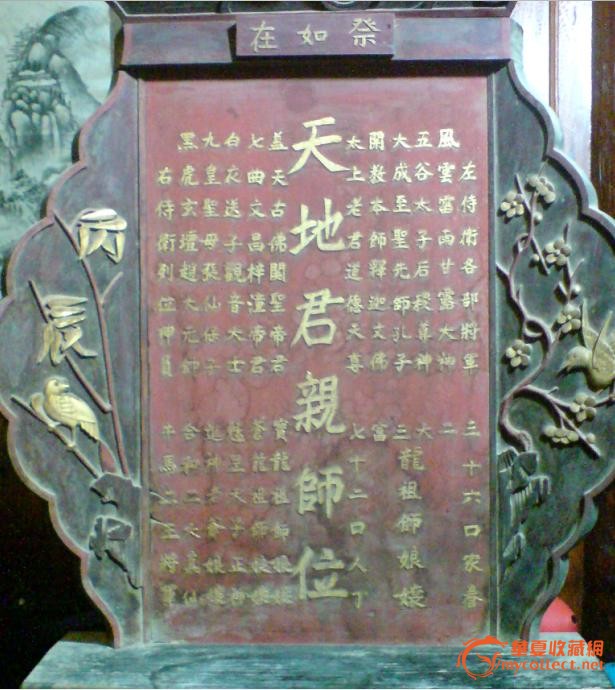 祭如在
左侍衛各部將軍
三十六口家眷
風雲雷雨甘露大神
二
五谷太子后稷尊神
大
大成至聖先師孔子
三龍祖師娘孃
爾教本師釋迦文佛
富
太上老君道德天尊
七十二口人丁
天地君親師位
蓋天古佛關聖帝君
寶龍祖師娘孃
七曲文昌梓潼帝君
蒼龍祖師娘孃
白衣送子觀音大士
魁星天子正
九皇聖母張仙保子
神老爺娘孃
黑虎玄壇趙大元帥
合和二大真仙
右侍衛列位神員
牛馬二王將軍
丙辰
華夏收藏網
mycollect.net